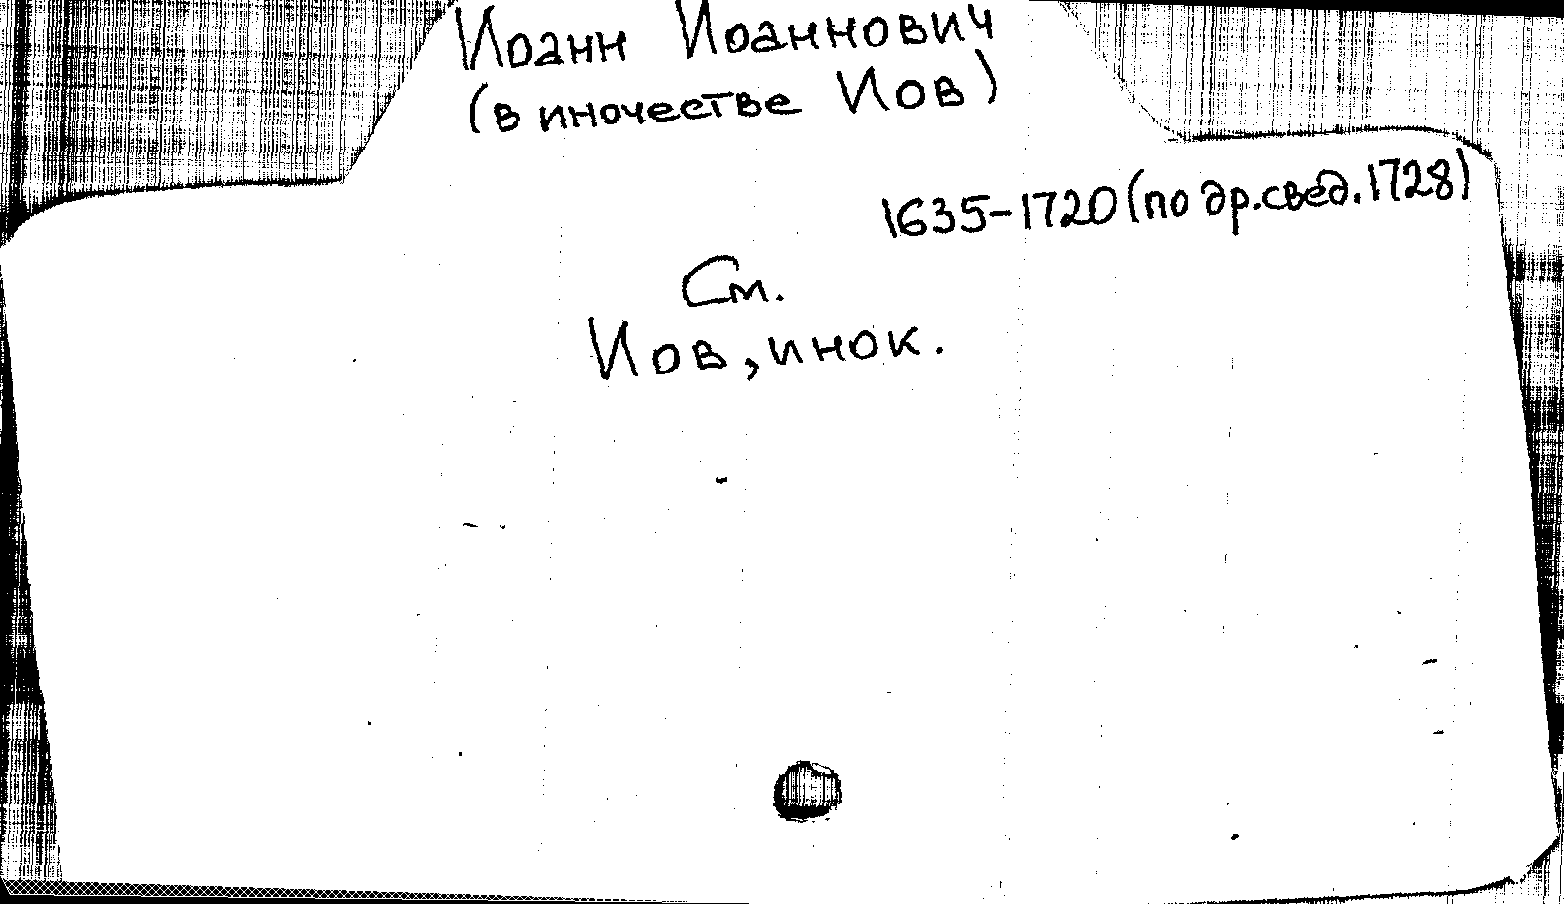 Иоанн Иоаннович
(в иночестве Иов)
1635-1720 (по др. свед. 1728)
См.
Иов, инок.